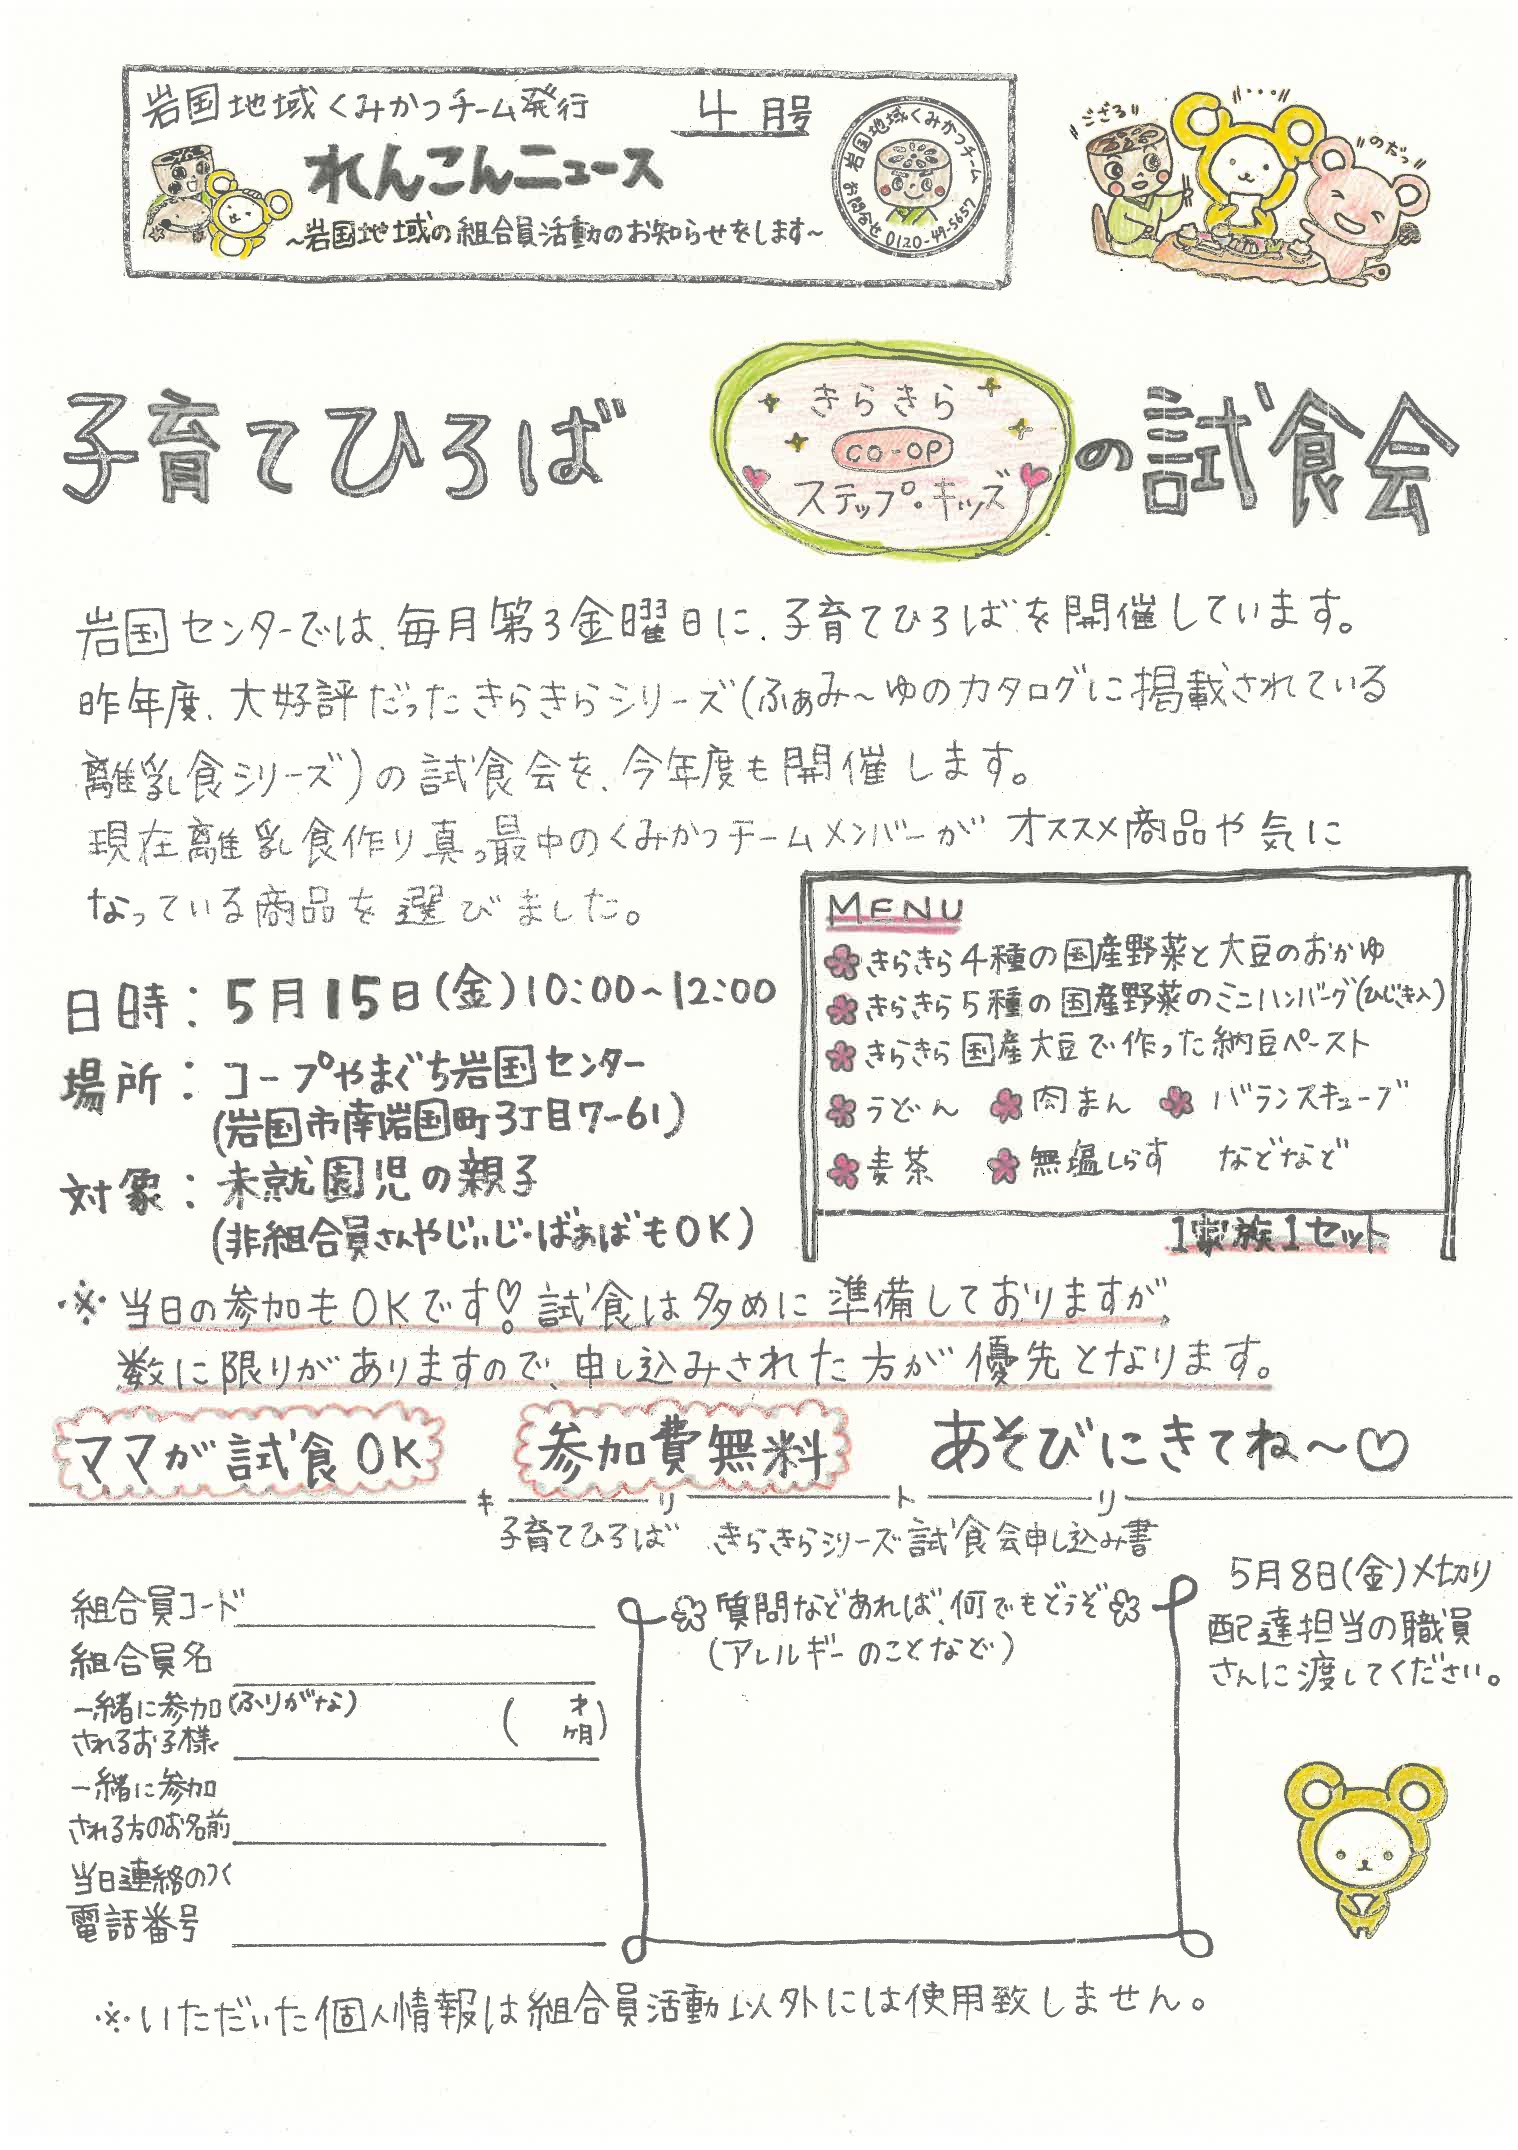 岩国地域くみかつチーム発行
4月号
れんこんニュース
~岩国地域の組合員活動のお知らせをします~
岩国地域くみかつチーム
お問合せ 0120-49-5657
ござる
・・・
のだっ
子育てひろば
きらきら
CO-OP
ステップ・キッズ
の試食会
岩国センターでは、毎月第3金曜日に、子育てひろばを開催しています。
昨年度、大好評だったきらきらシリーズ(ふぁみ~ゆのカタログに掲載されている
離乳食シリーズ)の試食会を、今年度も開催します。
現在離乳食作り真っ最中のくみかつチームメンバーが オススメ商品や気に
なっている商品を選びました。
日時: 5月15日(金)10:00~12:00
場所: コープやまぐち岩国センター
(岩国市南岩国町3丁目7-61)
対象: 未就園児の親子
(非組合員さんやじぃじ・ばぁばもOK)
MENU
きらきら4種の国産野菜と大豆のおかゆ
きらきら5種の国産野菜のミニハンバーグ(ひじき入)
きらきら国産大豆で作った納豆ペースト
うどん 肉まん バランスキューブ
麦茶 無塩しらす などなど
1家族1セット
※当日の参加もOKです♡試食は多めに準備しておりますが、
数に限りがありますので、申し込みされた方が優先となります。
ママが試食OK 参加費無料 あそびにきてね~♡
キリトリ
子育てひろば きらきらシリーズ試食会申し込み書
組合員コード
組合員名
一緒に参加(ふりがな)
されるお子様
( 才 ヶ月)
一緒に参加
される方のお名前
当日連絡のつく
電話番号
質問などあれば、何でもどうぞ
(アレルギーのことなど)
5月8日(金)〆切り
配達担当の職員
さんに渡してください。
※いただいた個人情報は組合員活動以外には使用致しません。